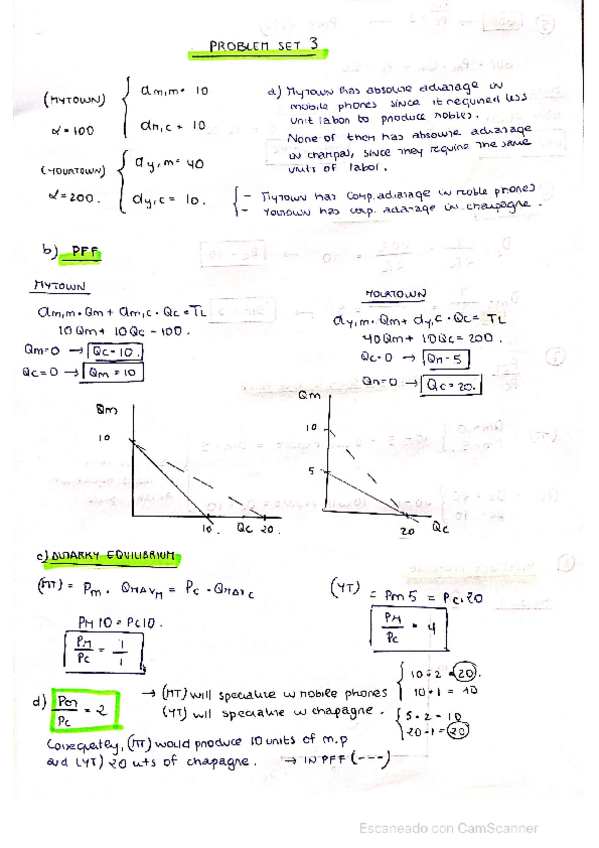 PROBLEM SET 3
(MYTOWN) α=100
am,m = 10
am,c = 10
(YOURTOWN) α=200.
ay,m = 40
ay,c = 10.
a) Mytown has absolute advantage in
mobile phones since it required less
unit labor to produce mobiles.
None of them has absolute advantage
in champag, since they require the same
units of labor.
- Mytown has comp. advantage in mobile phones
- Yourtown has comp. advantage in champagne.
b) PFF
MYTOWN
am,m · Qm + am,c · Qc = TL
10Qm + 10Qc = 100.
Qm=0 → Qc=10.
Qc=0 → Qm=10
YOURTOWN
ay,m · Qm + ay,c · Qc = TL
40Qm + 10Qc = 200.
Qc=0 → Qm=5
Qm=0 → Qc=20.
Qm
10
10. Qc 20.
Qm
10
5
20 Qc
c) AUTARKY EQUILIBRIUM
(MT) = Pm · Qmaxm = Pc · Qmaxc
PM 10 = Pc 10.
PM/Pc = 1/1
(YT) = Pm 5 = Pc · 20
PM/Pc = 4
d) Pm/Pc = 2
→ (MT) will specialize in mobile phones
10·2 = 20.
10·1 = 10
(YT) will specialize in chapagne.
5·2 = 10
20·1 = 20
(MT) would produce 10 units of m.p
and (YT) 20 uts of chapagne. → IN PFF (---)
Escaneado con CamScanner